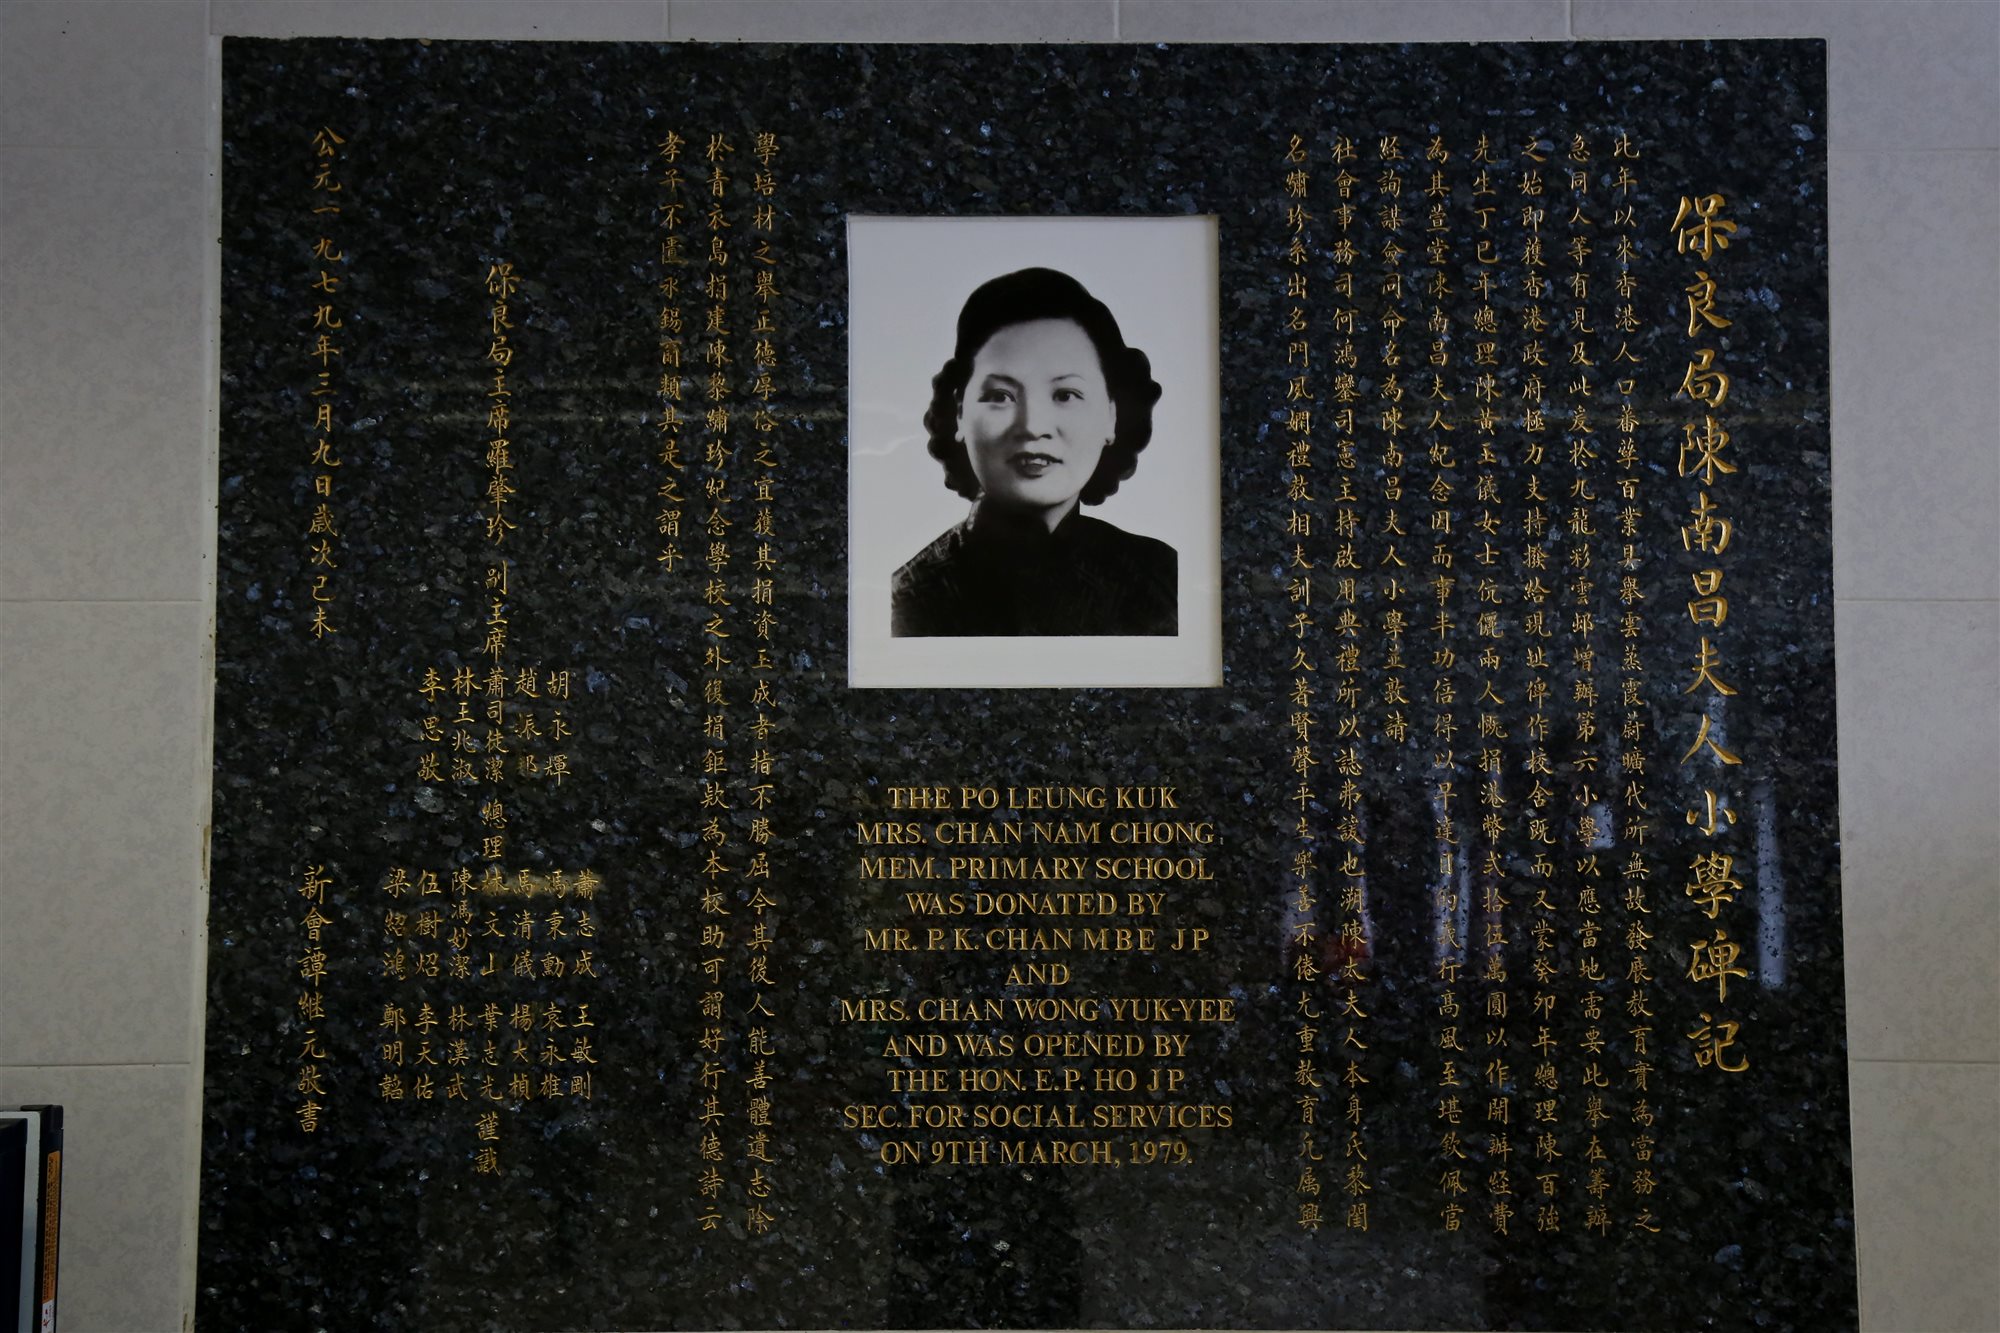 保良局陳南昌夫人小學碑記
比年以來香港人口蕃孳百業具舉雲蒸霞蔚曠代所無故發展教育實為當務之
急同人等有見及此爰於九龍彩雲邨增辦第六小學以應當地需要此舉在籌辦
之始即獲香港政府極力支持撥給現址俾作校舍既而又蒙癸卯年總理陳百強
先生丁巳年總理陳黃玉儀女士伉儷兩人慨捐港幣弍拾伍萬圓以作開辦經費
為其萱堂陳南昌夫人紀念因而事半功倍得以早達目的義行高風至堪欽佩當
經詢謀僉同命名為陳南昌夫人小學並敦請
社會事務司何鴻鑾司憲主持啟用典禮所以誌弗諼也溯陳太夫人本身氏黎閨
名繡珍系出名門夙嫻禮教相夫訓子久著賢聲平生樂善不倦尤重教育凡属興
學培材之舉正德厚俗之宜獲其捐資玉成者指不勝屈今其後人能善體遺志除
於青衣島捐建陳黎繡珍紀念學校之外復捐鉅欵為本校助可謂好行其德詩云
孝子不匱永錫爾類其是之謂乎
THE PO LEUNG KUK
MRS. CHAN NAM CHONG
MEM. PRIMARY SCHOOL
WAS DONATED BY
MR. P. K. CHAN MBE JP
AND
MRS. CHAN WONG YUK-YEE
AND WAS OPENED BY
THE HON. E. P. HO JP
SEC. FOR SOCIAL SERVICES
ON 9TH MARCH, 1979.
保良局主席羅肇珍 副主席
胡永輝
趙振邦
蕭司徒潔
林王兆淑
李思敬
總理
蕭志成 王敏剛
馮秉勳 袁永雄
馬清儀 楊大楨
林文山 葉志光
陳馮妙潔 林漢武
伍樹炤 李天佑
梁紹鴻 鄭明韜
謹識
公元一九七九年三月九日歲次己未
新會譚継元敬書